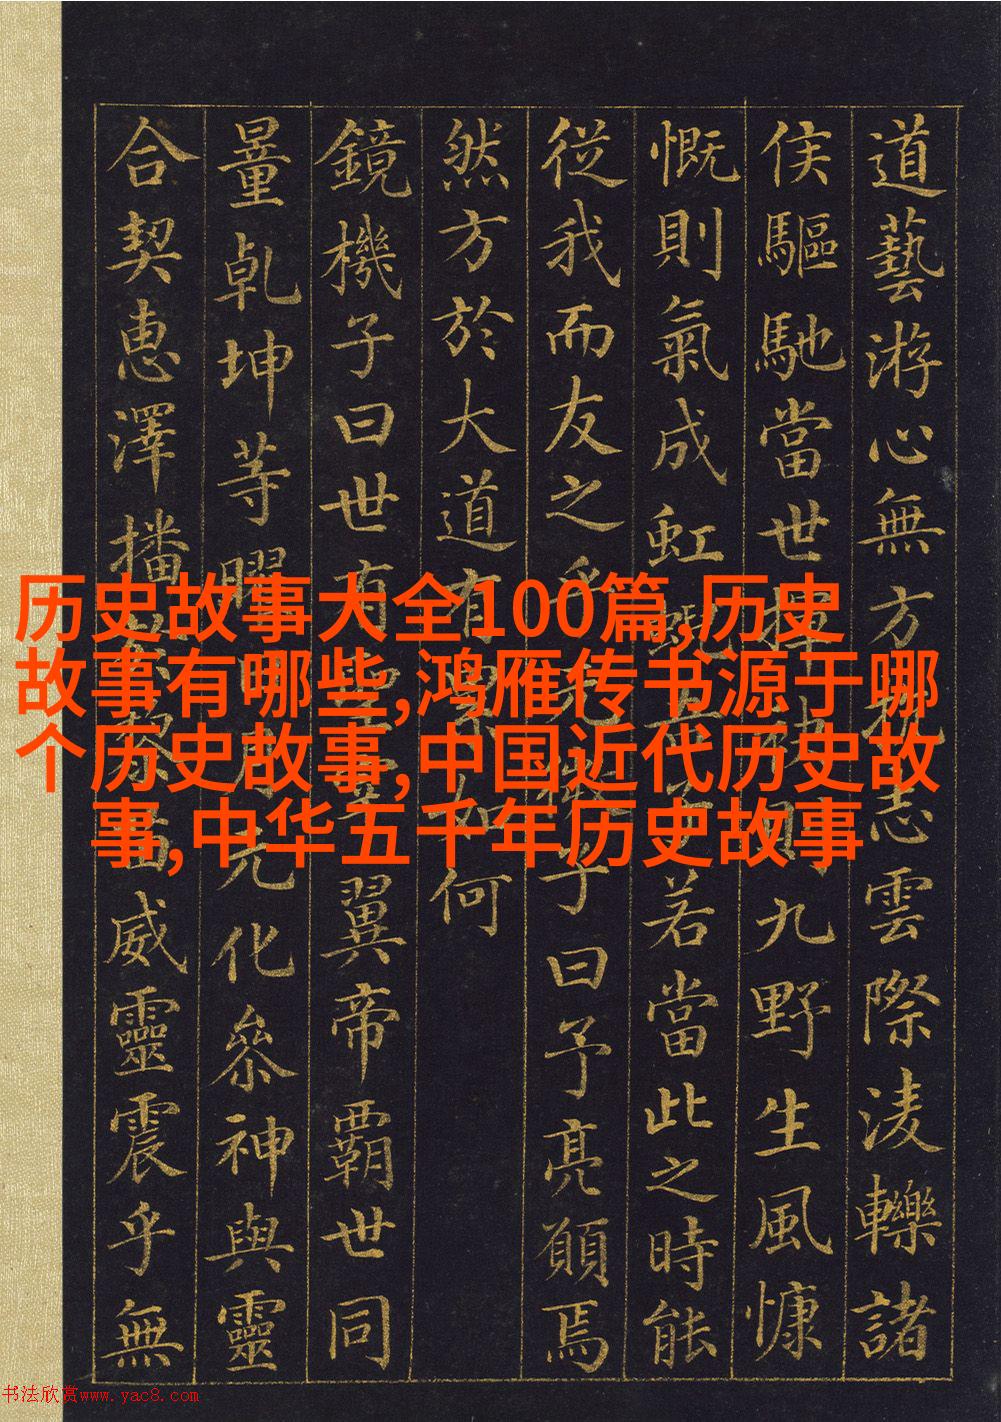 历史故事大全100篇,历史
故事有哪些,鸿雁传书源于哪
个历史故事,中国近代历史故
事,中华五千年历史故事
道藝游心無方志雲際淩轢諸
侯驅馳當世揮九野生風慷
慨則氣成虹蜺若當此之時能
從我而友之乎子曰予亮願焉
然方於大道有如何
鏡機子曰世有翼帝霸世同
量乾坤等曜化參神與靈
合契惠澤播威靈震乎無
书法欣赏www.yac8.com